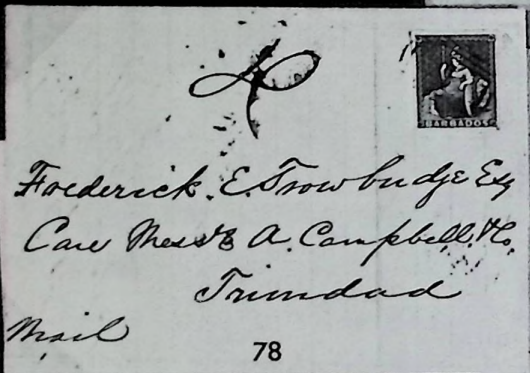 4
BARBADOS
Frederick. E. Trowbridge Esq
Care Messrs A. Campbell & Co.
Trinidad
Mail
78